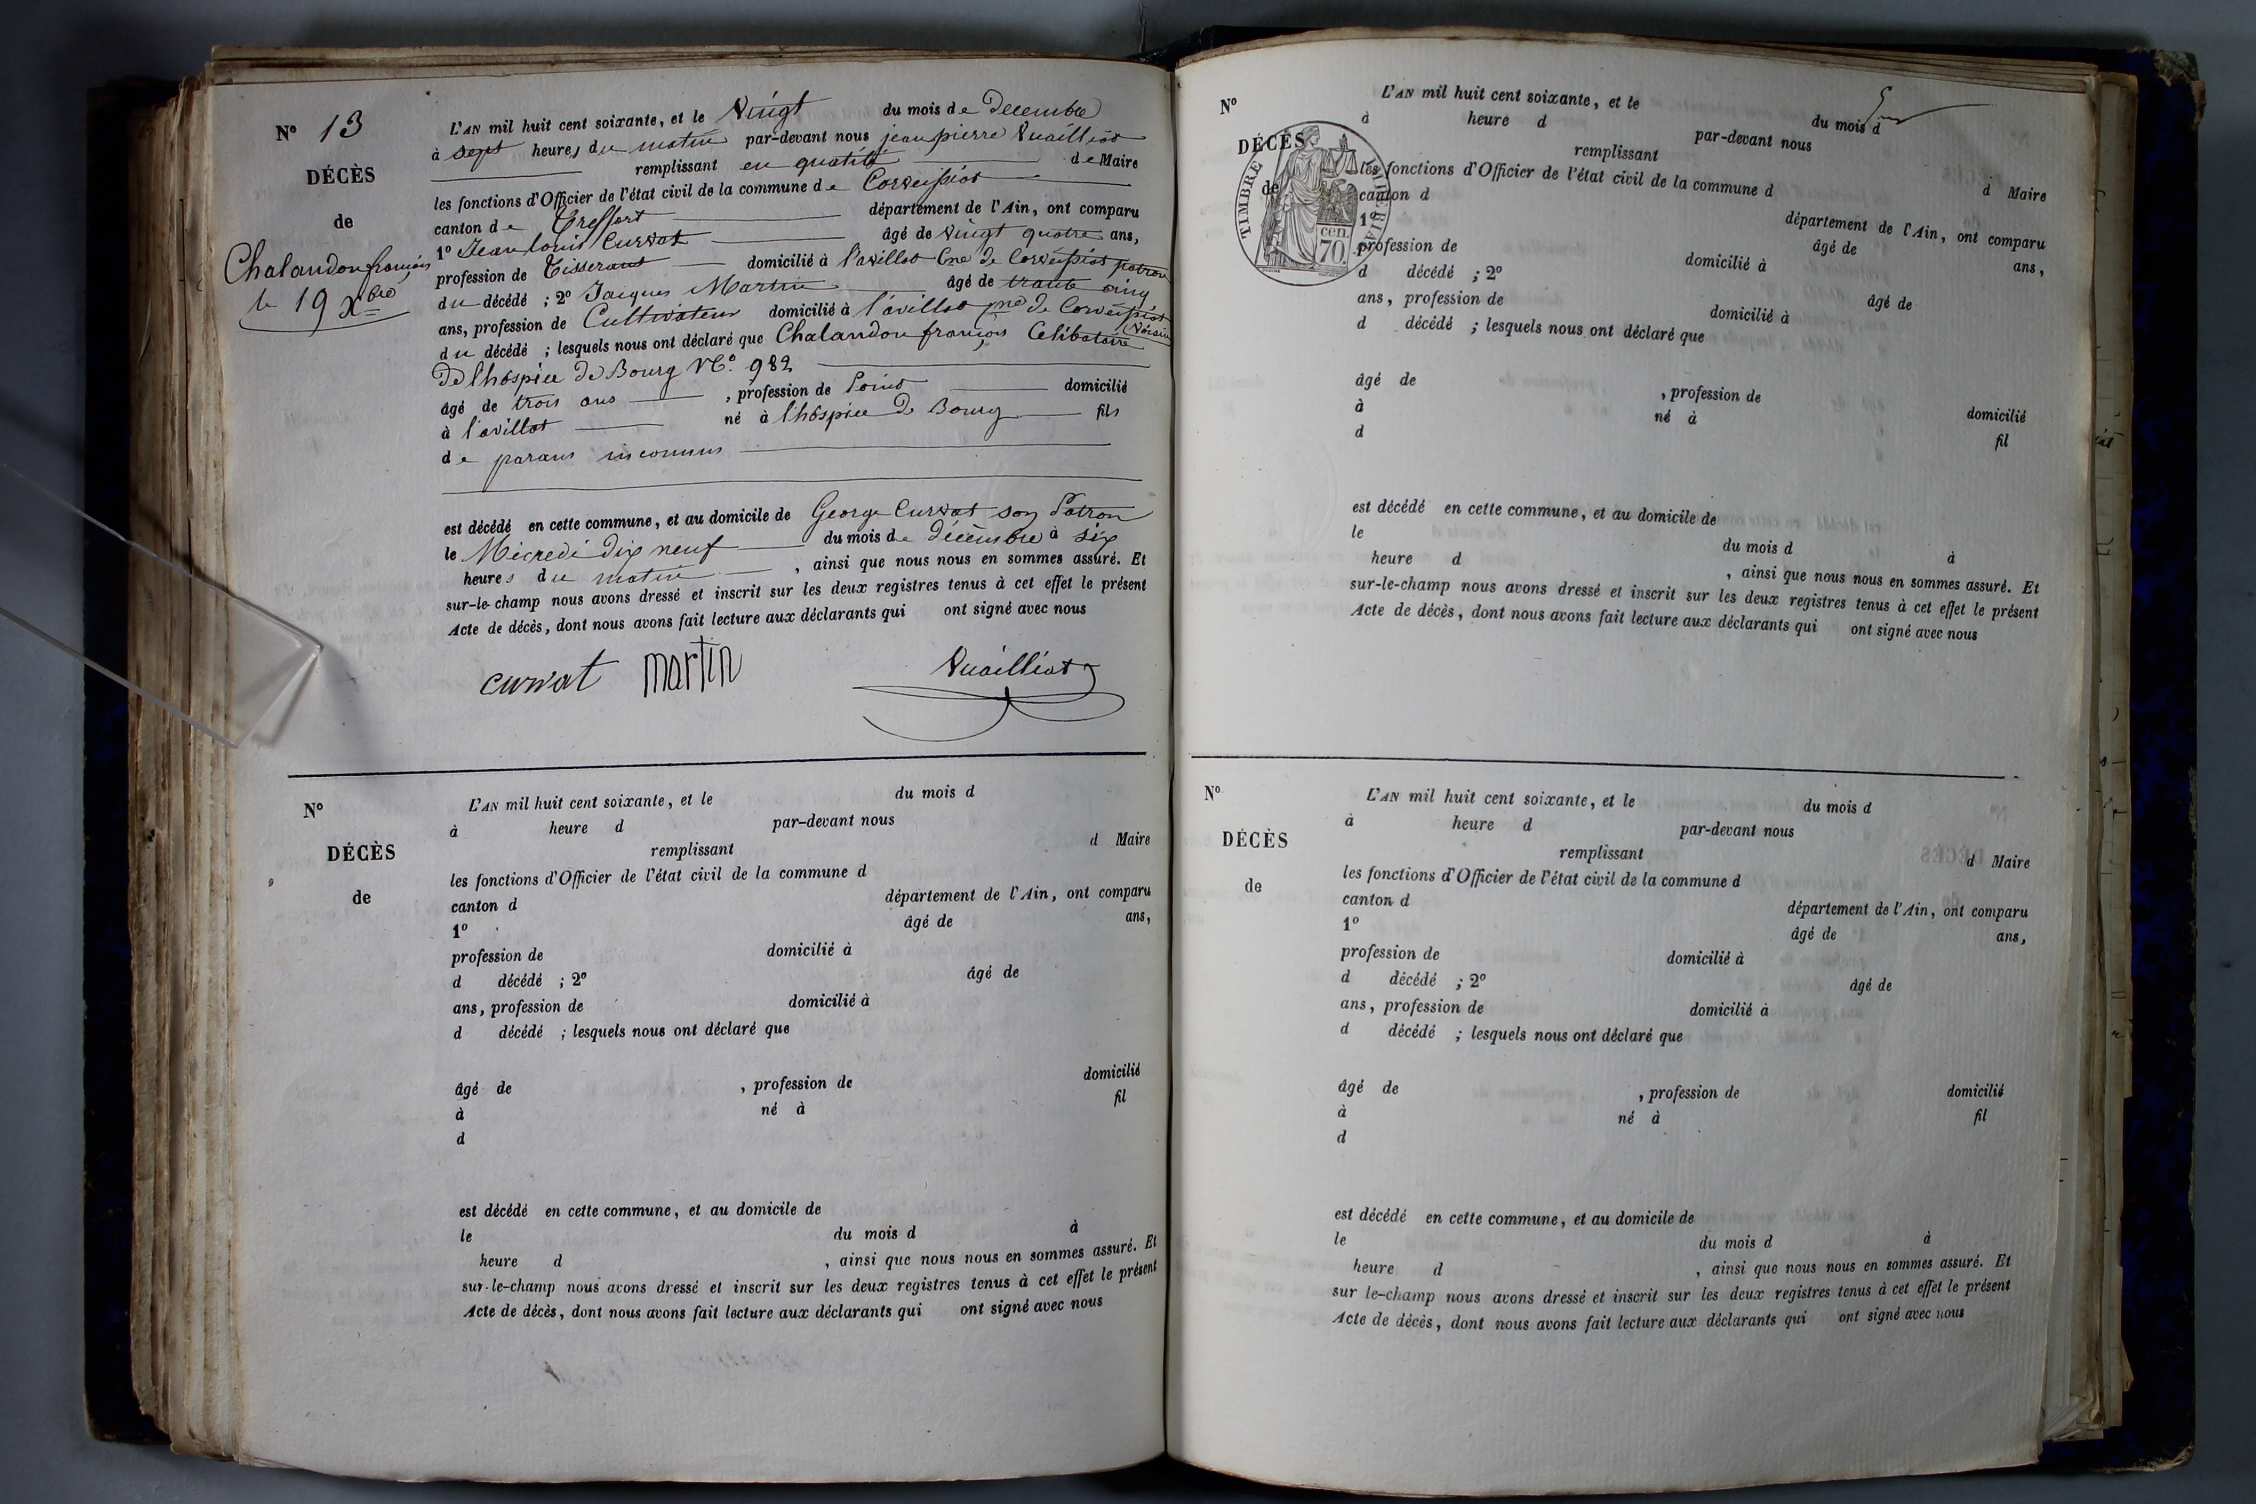 N° 13
DÉCÈS
de
Chalandon françois
le 19 Xbre
L'AN mil huit cent soixante, et le Vingt du mois de Decembre
à sept heures du matin par-devant nous jean pierre Vuailliat
remplissant en qualité de Maire
les fonctions d'Officier de l'état civil de la commune de Corveissiat
canton de Treffort département de l'Ain, ont comparu
1° Jean louis Curvat âgé de vingt quatre ans,
profession de Tisserant domicilié à l'avillat Cne de Corveissiat patron
du décédé ; 2° Jacques Martin âgé de trante cinq
ans, profession de Cultivateur domicilié à l'avillat Cne de Corveissiat
(Voisin
du décédé ; lesquels nous ont déclaré que Chalandon françois Célibataire
De lhospice De Bourg N°. 982
âgé de trois ans , profession de Point domicilié
à l'avillat né à lhospice De Bourg fils
de parans inconnus
est décédé en cette commune, et au domicile de George Curvat son Patron
le Mécredi dix neuf du mois de décembre à six
heures du matin , ainsi que nous nous en sommes assuré. Et
sur-le-champ nous avons dressé et inscrit sur les deux registres tenus à cet effet le présent
Acte de décès, dont nous avons fait lecture aux déclarants qui ont signé avec nous
curvat martin Vuailliat
N°
DÉCÈS
de
L'AN mil huit cent soixante, et le du mois d
à heure d par-devant nous
remplissant d Maire
les fonctions d'Officier de l'état civil de la commune d
canton d département de l'Ain, ont comparu
1° âgé de ans,
profession de domicilié à
d décédé ; 2° âgé de
ans, profession de domicilié à
d décédé ; lesquels nous ont déclaré que
âgé de , profession de domicilié
à né à fil
d
est décédé en cette commune, et au domicile de
le du mois d à
heure d , ainsi que nous nous en sommes assuré. Et
sur-le-champ nous avons dressé et inscrit sur les deux registres tenus à cet effet le présent
Acte de décès, dont nous avons fait lecture aux déclarants qui ont signé avec nous
N°
DÉCÈS
de
TIMBRE IMPERIAL
cen.
70.
L'AN mil huit cent soixante, et le du mois d
à heure d par-devant nous
remplissant d Maire
les fonctions d'Officier de l'état civil de la commune d
canton d département de l'Ain, ont comparu
1° âgé de ans,
profession de domicilié à
d décédé ; 2° âgé de
ans, profession de domicilié à
d décédé ; lesquels nous ont déclaré que
âgé de , profession de domicilié
à né à fil
d
est décédé en cette commune, et au domicile de
le du mois d à
heure d , ainsi que nous nous en sommes assuré. Et
sur-le-champ nous avons dressé et inscrit sur les deux registres tenus à cet effet le présent
Acte de décès, dont nous avons fait lecture aux déclarants qui ont signé avec nous
N°
DÉCÈS
de
L'AN mil huit cent soixante, et le du mois d
à heure d par-devant nous
remplissant d Maire
les fonctions d'Officier de l'état civil de la commune d
canton d département de l'Ain, ont comparu
1° âgé de ans,
profession de domicilié à
d décédé ; 2° âgé de
ans, profession de domicilié à
d décédé ; lesquels nous ont déclaré que
âgé de , profession de domicilié
à né à fil
d
est décédé en cette commune, et au domicile de
le du mois d à
heure d , ainsi que nous nous en sommes assuré. Et
sur le-champ nous avons dressé et inscrit sur les deux registres tenus à cet effet le présent
Acte de décès, dont nous avons fait lecture aux déclarants qui ont signé avec nous